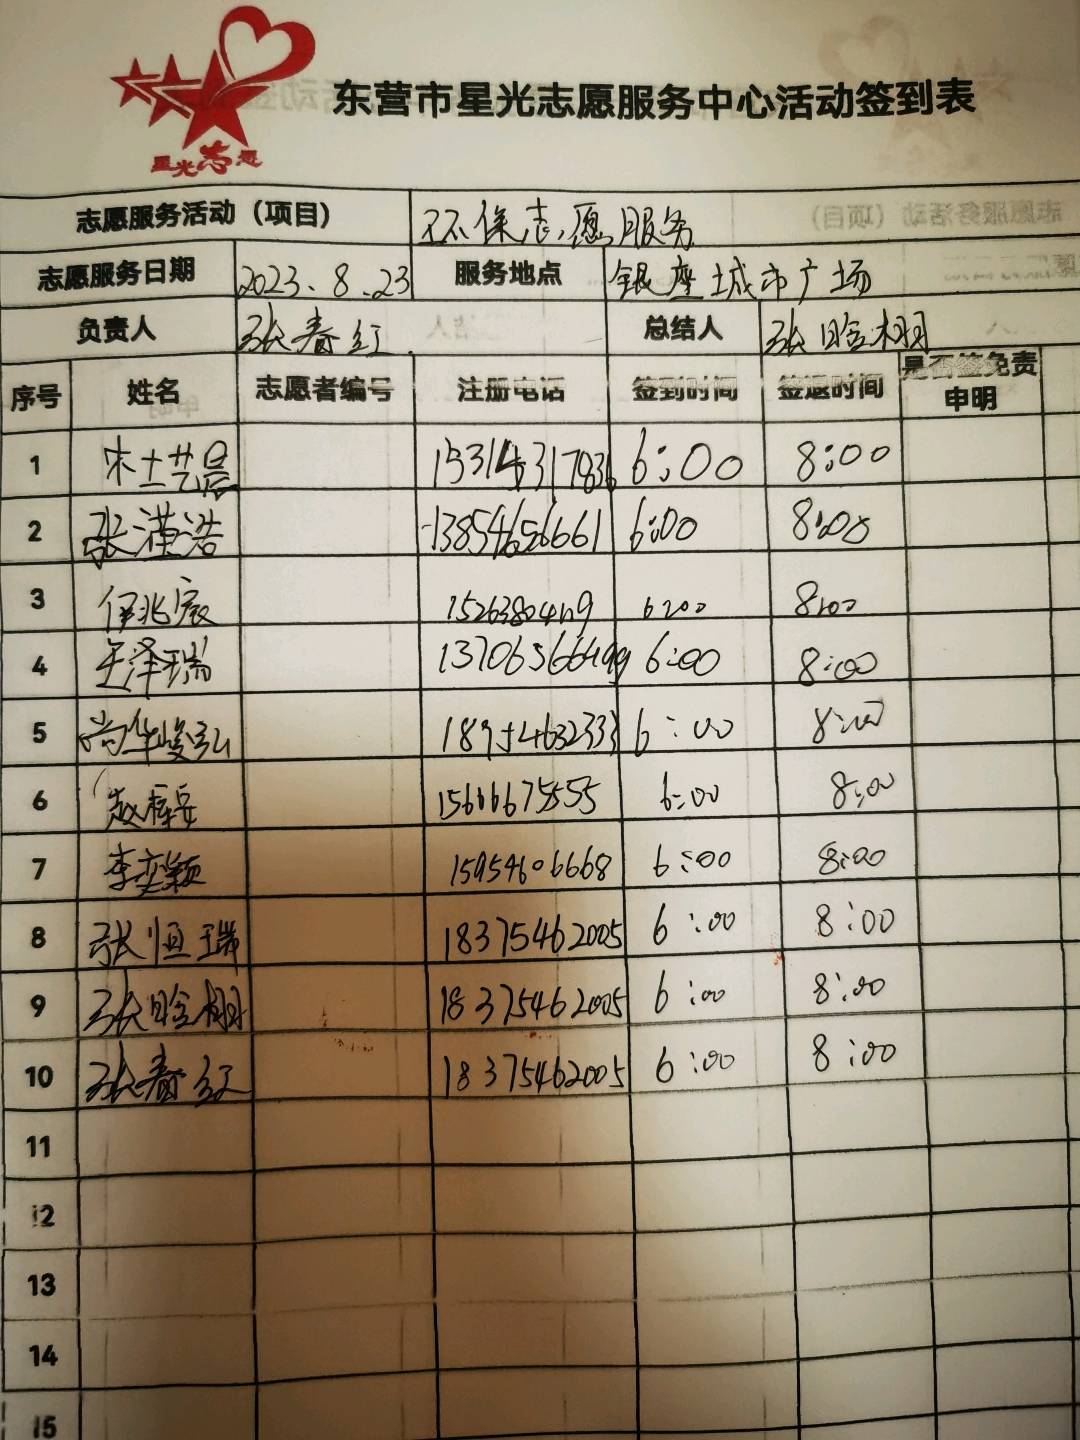 星光志愿
东营市星光志愿服务中心活动签到表
志愿服务活动（项目） 环保志愿服务
志愿服务日期 2023.8.23 服务地点 银座城市广场
负责人 张春红 总结人 张晗栩
序号 姓名 志愿者编号 注册电话 签到时间 签退时间 是否签免责申明
1 15314317836 6:00 8:00
2 张瀅浩 13854656661 6:00 8:00
3 伊兆宸 6:00 8:00
4 王泽瑞 13706366499 6:00 8:00
5 尚华峻弘 18954632333 6:00 8:00
6 赵梓妄 15666675555 6:00 8:00
7 李奕颖 15954606668 6:00 8:00
8 张恒瑞 18375462005 6:00 8:00
9 张晗栩 18375462005 6:00 8:00
10 张春红 18375462005 6:00 8:00
11
12
13
14
15